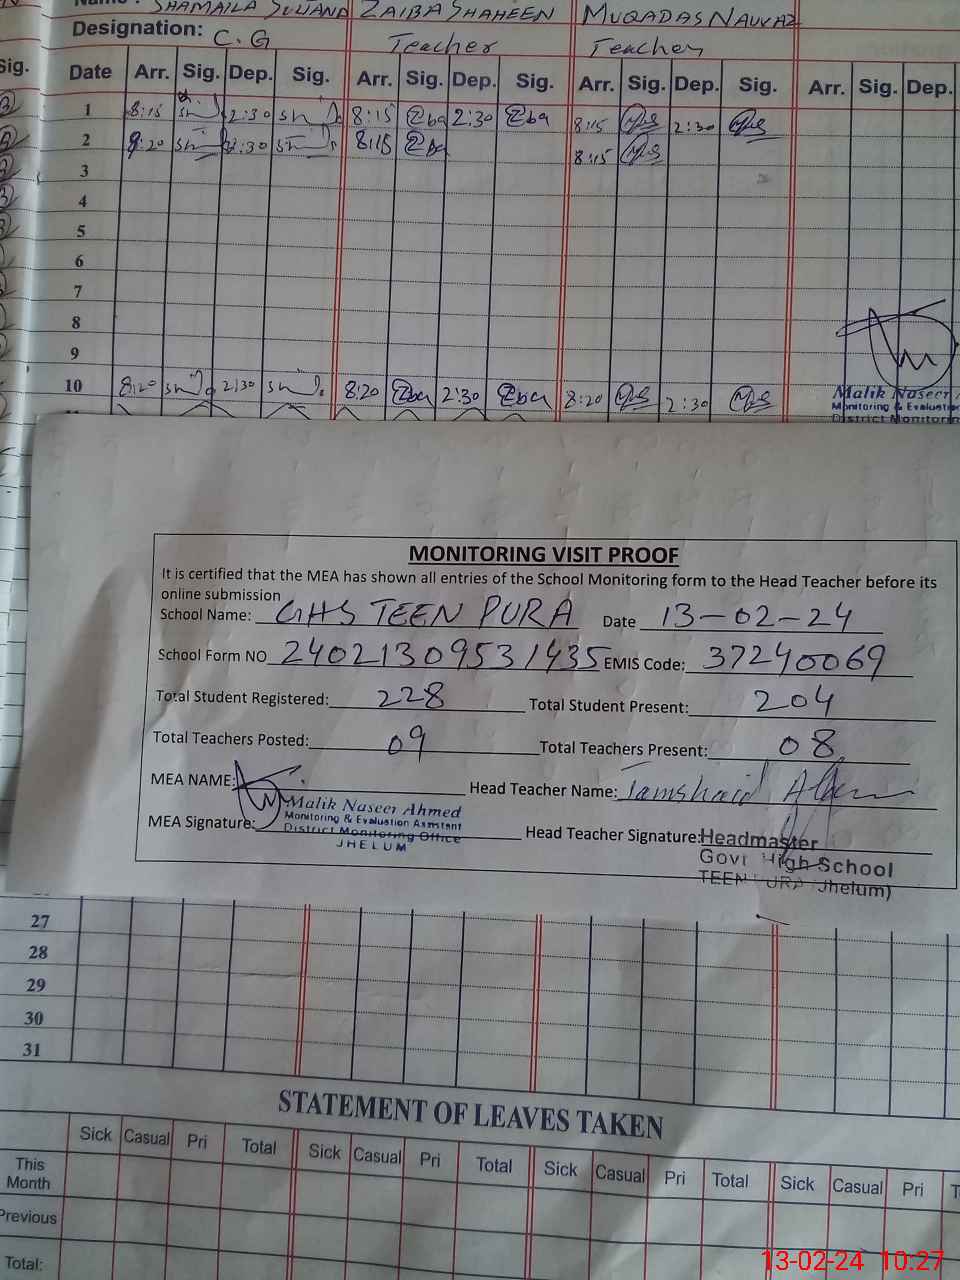 SHAMAILA SULTANA ZAIBA SHAHEEN MUQADAS NAWAZ
Designation: C.G Teacher Teacher
Sig. Date Arr. Sig. Dep. Sig. Arr. Sig. Dep. Sig. Arr. Sig. Dep. Sig. Arr. Sig. Dep.
1 8:15 2:30 8:15 Zba 2:30 Zba 8:15 2:30
2 8:20 2:30 8:15 Zba 8:15
3
4
5
6
7
8
9
10 8:20 2:30 8:20 Zba 2:30 Zba 8:20 2:30
Malik Naseer
Monitoring & Evaluation
District Monitoring
MONITORING VISIT PROOF
It is certified that the MEA has shown all entries of the School Monitoring form to the Head Teacher before its
online submission
School Name: GHS TEEN PURA Date 13-02-24
School Form NO 24021309531435 EMIS Code: 37240069
Total Student Registered: 228 Total Student Present: 204
Total Teachers Posted: 09 Total Teachers Present: 08
MEA NAME: Head Teacher Name:
Malik Naseer Ahmed
Monitoring & Evaluation Assistant
MEA Signature: District Monitoring Office Head Teacher Signature: Headmaster
JHELUM
Govt High School
TEEN PURA (Jhelum)
27
28
29
30
31
STATEMENT OF LEAVES TAKEN
Sick Casual Pri Total Sick Casual Pri Total Sick Casual Pri Total Sick Casual Pri
This
Month
Previous
Total:
13-02-24 10:27